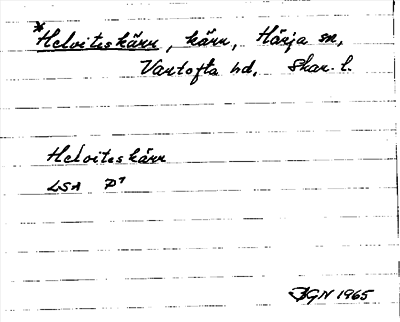 *Helviteskärr, kärr, Härja sn,
Vartofta hd. Skar. l.
Helviteskärr
LSA P⁷
BGN 1965